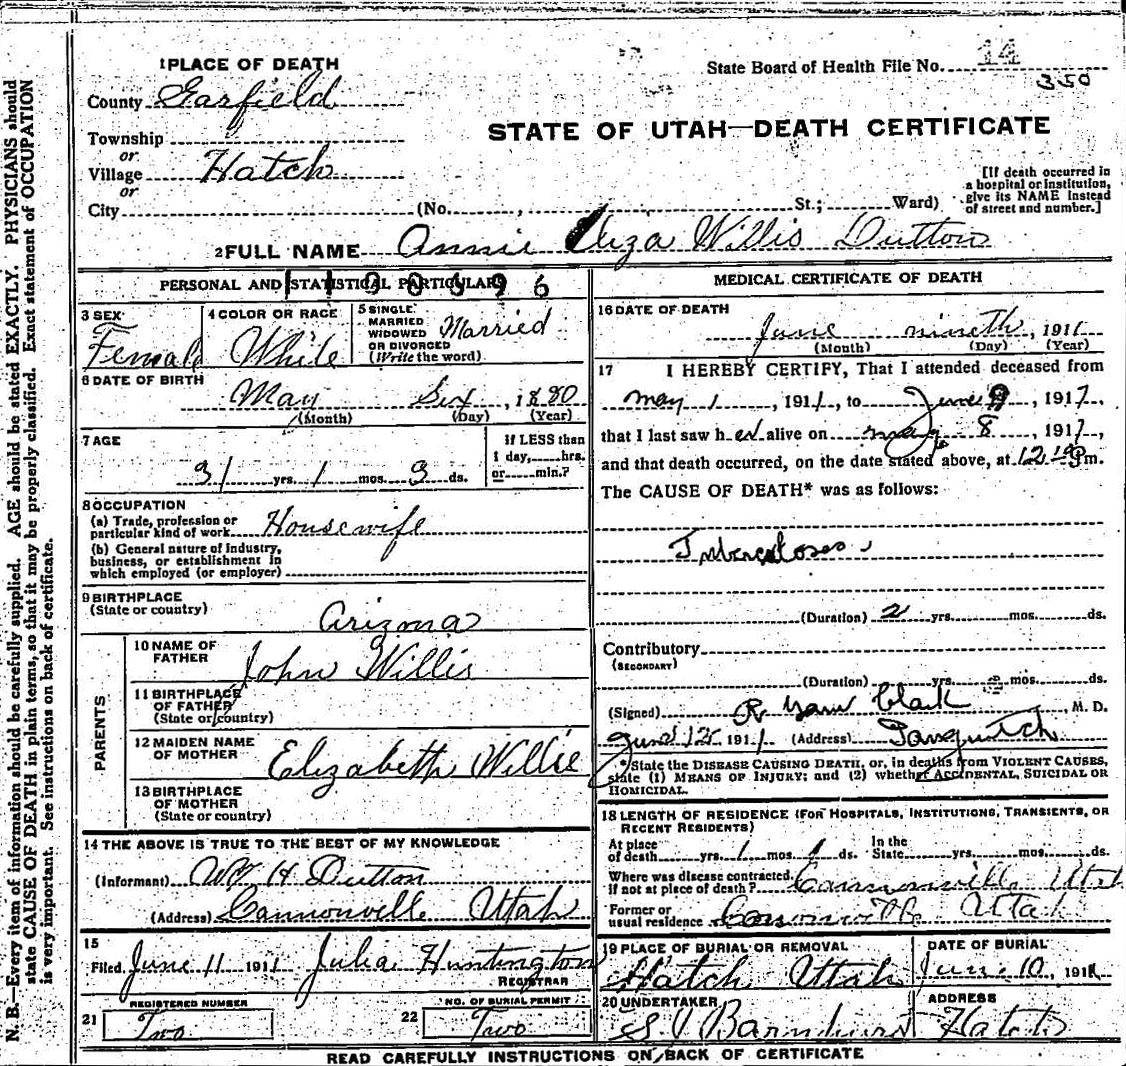 N. B.—Every item of information should be carefully supplied. AGE should be stated EXACTLY. PHYSICIANS should
state CAUSE OF DEATH in plain terms, so that it may be properly classified. Exact statement of OCCUPATION
is very important. See instructions on back of certificate.
1 PLACE OF DEATH
State Board of Health File No. 14
350
County Garfield
STATE OF UTAH—DEATH CERTIFICATE
Township
or
Village Hatch
or
City (No. , St.; Ward)
[If death occurred in
a hospital or institution,
give its NAME instead
of street and number.]
2 FULL NAME Annie Eliza Willis Dutton
PERSONAL AND STATISTICAL PARTICULARS
MEDICAL CERTIFICATE OF DEATH
3 SEX Female
4 COLOR OR RACE White
5 SINGLE
MARRIED
WIDOWED
OR DIVORCED
(Write the word) Married
6 DATE OF BIRTH
May Six, 1880
(Month) (Day) (Year)
7 AGE
31 yrs. 1 mos. 3 ds.
If LESS than
1 day, hrs.
or min.?
8 OCCUPATION
(a) Trade, profession or
particular kind of work Housewife
(b) General nature of industry,
business, or establishment in
which employed (or employer)
9 BIRTHPLACE
(State or country) Arizona
PARENTS
10 NAME OF
FATHER John Willis
11 BIRTHPLACE
OF FATHER
(State or country)
12 MAIDEN NAME
OF MOTHER Elizabeth Willis
13 BIRTHPLACE
OF MOTHER
(State or country)
14 THE ABOVE IS TRUE TO THE BEST OF MY KNOWLEDGE
(Informant) Wm H Dutton
(Address) Cannonville Utah
15
Filed June 11 1911 Julia Huntington
REGISTRAR
REGISTERED NUMBER
21 Two
NO. OF BURIAL PERMIT
22 Two
16 DATE OF DEATH
June nineth, 1911
(Month) (Day) (Year)
17 I HEREBY CERTIFY, That I attended deceased from
May 1, 1911, to June 9, 1911,
that I last saw her alive on May 8, 1911,
and that death occurred, on the date stated above, at 12 10 Pm.
The CAUSE OF DEATH* was as follows:
Tuberculoses
(Duration) 2 yrs. mos. ds.
Contributory
(SECONDARY)
(Duration) yrs. mos. ds.
(Signed) R Clark, M. D.
June 12 1911 (Address) Panguitch
*State the DISEASE CAUSING DEATH, or, in deaths from VIOLENT CAUSES,
state (1) MEANS OF INJURY; and (2) whether ACCIDENTAL, SUICIDAL OR
HOMICIDAL.
18 LENGTH OF RESIDENCE (FOR HOSPITALS, INSTITUTIONS, TRANSIENTS, OR
RECENT RESIDENTS)
At place
of death yrs. 1 mos. 1 ds. In the
State yrs. mos. ds.
Where was disease contracted,
if not at place of death? Cannonville Utah
Former or
usual residence Cannonville Utah
19 PLACE OF BURIAL OR REMOVAL
Hatch Utah
DATE OF BURIAL
June 10, 1911
20 UNDERTAKER
S. V. Barnhurst
ADDRESS
Hatch
READ CAREFULLY INSTRUCTIONS ON BACK OF CERTIFICATE